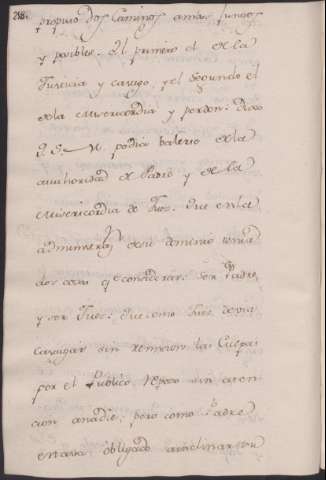 218.
propuso dos Caminos ambos juntos
y posibles. El primero el de la
Justicia y castigo, y el Segundo el
de la Misericordia y perdon: Dixo
q.e S. M. podia valerse de la
authoridad de Padre y de la
Misericordia de Juez. Que en la
administraz.n de su dominio tenia
dos cosas q.e considerar: ser Padre,
y ser Juez. Que como Juez devia
castigar sin remision las Culpas
por el Publico respeto sin aten-
cion anadie; pero como Padre
estava obligado a inclinar su